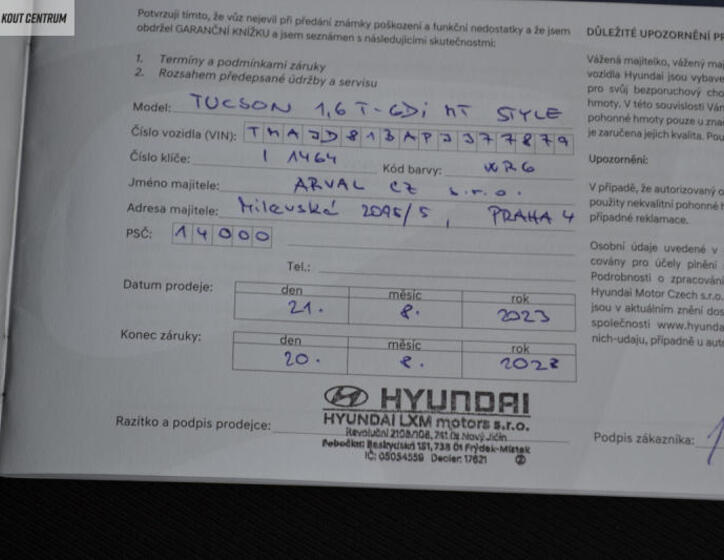 KOUT CENTRUM
Potvrzuji tímto, že vůz nejevil při předání známky poškození a funkční nedostatky a že jsem
obdržel GARANČNÍ KNÍŽKU a jsem seznámen s následujícími skutečnostmi:
1. Termíny a podmínkami záruky
2. Rozsahem předepsané údržby a servisu
Model: TUCSON 1,6 T-GDi MT STYLE
Číslo vozidla (VIN): TMAJD81BAPJ377879
Číslo klíče: I 1464 Kód barvy: WR6
Jméno majitele: ARVAL CZ s.r.o.
Adresa majitele: Milevská 2095/5, PRAHA 4
PSČ: 14000
Tel.:
Datum prodeje: den měsíc rok
21. 8. 2023
Konec záruky: den měsíc rok
20. 8. 2028
HYUNDAI
HYUNDAI LXM motors s.r.o.
Revoluční 2108/108, 741 01 Nový Jičín
Pobočka: Beskydská 151, 738 01 Frýdek-Místek
IČ: 05054559 Dealer: 17621
Razítko a podpis prodejce:
DŮLEŽITÉ UPOZORNĚNÍ PR
Vážená majitelko, vážený maj
vozidla Hyundai jsou vybave
pro svůj bezporuchový cho
hmoty. V této souvislosti Vá
pohonné hmoty pouze u znač
je zaručena jejich kvalita. Pou
Upozornění:
V případě, že autorizovaný o
použity nekvalitní pohonné h
případné reklamace.
Osobní údaje uvedené v
covány pro účely plnění
Podrobnosti o zpracování
Hyundai Motor Czech s.r.o.
jsou v aktuálním znění dos
společnosti www.hyunda
nich-udaju, případně u auto
Podpis zákazníka: